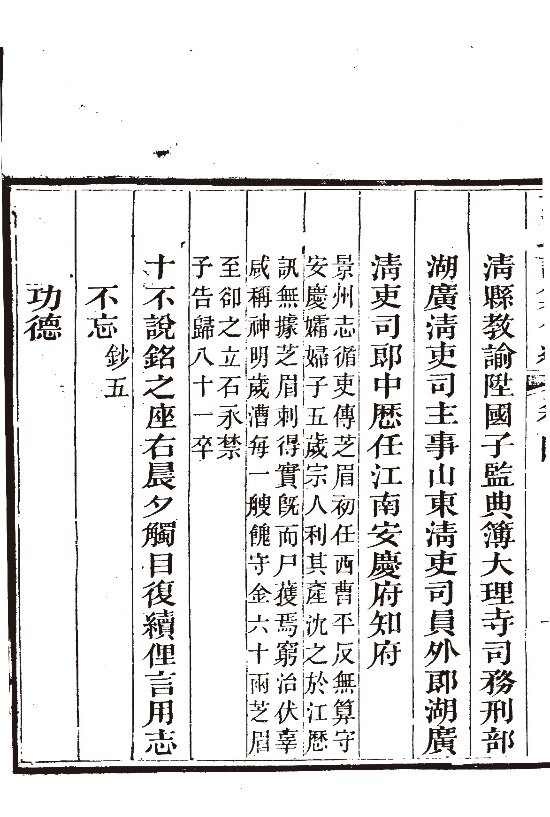 清縣教諭陞國子監典簿大理寺司務刑部
湖廣清吏司主事山東清吏司員外郎湖廣
清吏司郎中歷任江南安慶府知府
景州志循吏傳芝眉初任西曹平反無算守
安慶孀婦子五歲宗人利其產沈之於江歷
訊無據芝眉刺得實旣而尸獲焉窮治伏辜
咸稱神明歲漕每一艘餽守金六十兩芝眉
至卻之立石永禁
子告歸八十一卒
十不說銘之座右晨夕觸目復續俚言用志
不忘 鈔五
功德